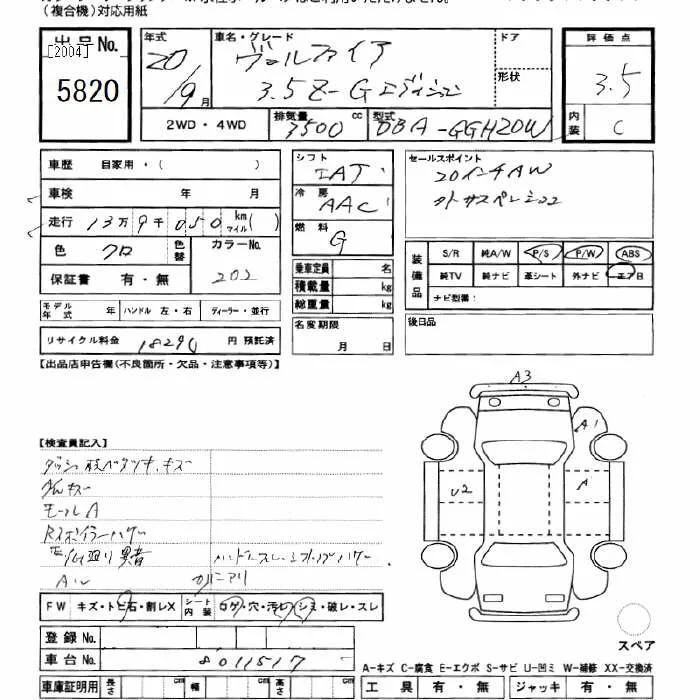 (複合機)対応用紙
出品No.
[2004]
5820
年式 20/9月
車名・グレード ヴェルファイア
3.5Z-Gエディション
ドア
形状
2WD・4WD
排気量 3500 cc
型式 DBA-GGH20W
評価点 3.5
内装 C
車歴 自家用・( )
車検 年 月
走行 13万9千050 km マイル( )
色 クロ 色替 カラーNo. 202
保証書 有・無
モデル年式 年 ハンドル 左・右 ディーラー・並行
リサイクル料金 18290 円 預託済
シフト IAT
冷房 AAC
燃料 G
乗車定員 名
積載量 kg
総重量 kg
名変期限 月 日
セールスポイント
20インチAW
装備品 S/R 純A/W P/S P/W ABS
純TV 純ナビ 革シート 外ナビ エアB
ナビ型番:
後日品
【出品店申告欄(不良箇所・欠品・注意事項等)】
【検査員記入】
モールA
Rスポイラーハゲ
A3
A1
U2
A
FW キズ・トビ石・割レX シート内装 コゲ・穴・汚レ・シミ・破レ・スレ
登録No.
車台No. 8011517
車庫証明用 長さ cm 幅 cm 高さ cm
スペア
A-キズ C-腐食 E-エクボ S-サビ U-凹ミ W-補修 XX-交換済
工具 有・無 ジャッキ 有・無